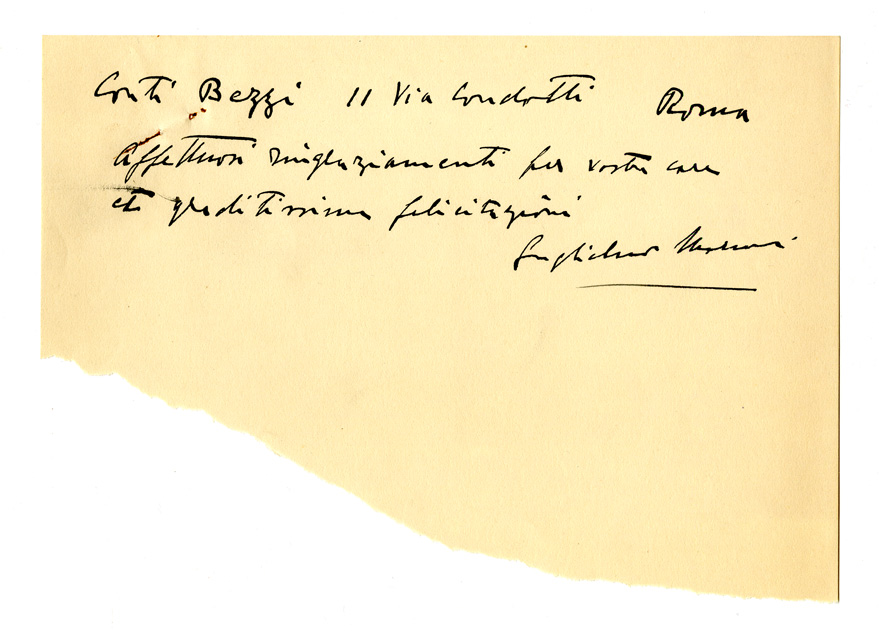 Conti Bezzi 11 Via Condotti Roma
Affettuosi ringraziamenti per vostre care
et graditissime felicitazioni
Guglielmo Marconi